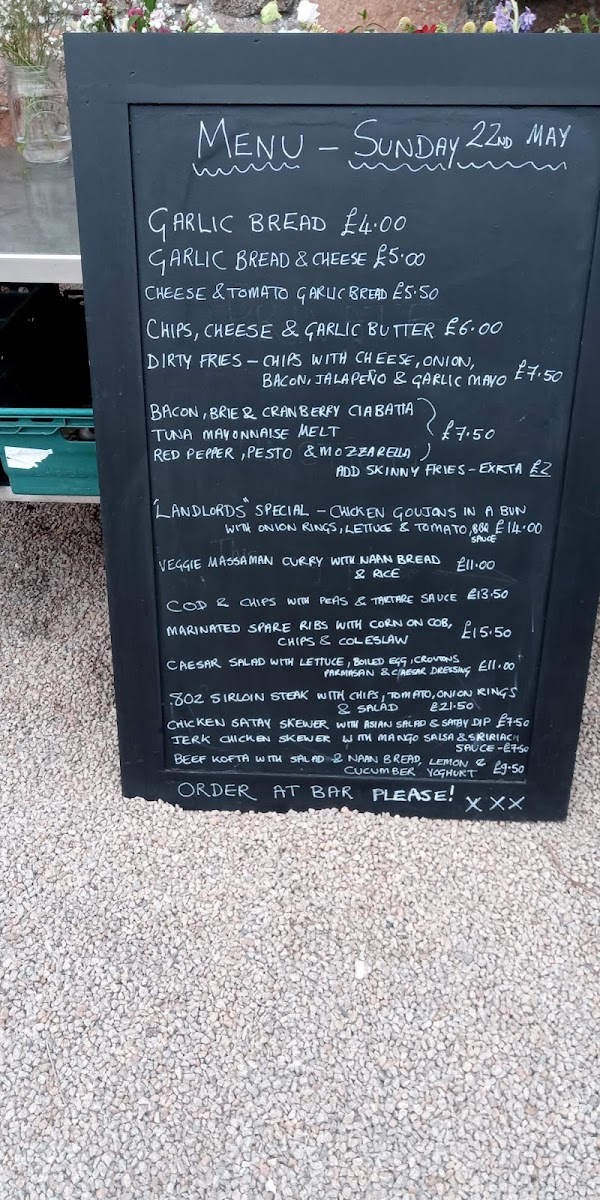 MENU - SUNDAY 22ND MAY
GARLIC BREAD £4.00
GARLIC BREAD & CHEESE £5.00
CHEESE & TOMATO GARLIC BREAD £5.50
CHIPS, CHEESE & GARLIC BUTTER £6.00
DIRTY FRIES - CHIPS WITH CHEESE, ONION,
BACON, JALAPEÑO & GARLIC MAYO £7.50
BACON, BRIE & CRANBERRY CIABATTA
TUNA MAYONNAISE MELT
£7.50
RED PEPPER, PESTO & MOZZARELLA
ADD SKINNY FRIES - EXRTA £2
"LANDLORDS" SPECIAL - CHICKEN GOUJONS IN A BUN
WITH ONION RINGS, LETTUCE & TOMATO, BBQ SAUCE £14.00
VEGGIE MASSAMAN CURRY WITH NAAN BREAD
& RICE £11.00
COD & CHIPS WITH PEAS & TARTARE SAUCE £13.50
MARINATED SPARE RIBS WITH CORN ON COB,
CHIPS & COLESLAW £15.50
CAESAR SALAD WITH LETTUCE, BOILED EGG, CROUTONS
PARMASAN & CAEGAR DRESSING £11.00
8OZ SIRLOIN STEAK WITH CHIPS, TOMATO, ONION RINGS
& SALAD £21.50
CHICKEN SATAY SKEWER WITH ASIAN SALAD & SATAY DIP £7.50
JERK CHICKEN SKEWER WITH MANGO SALSA & SRIRIACH
SAUCE - £7.50
BEEF KOFTA WITH SALAD & NAAN BREAD, LEMON &
CUCUMBER YOGHURT £9.50
ORDER AT BAR PLEASE! XXX